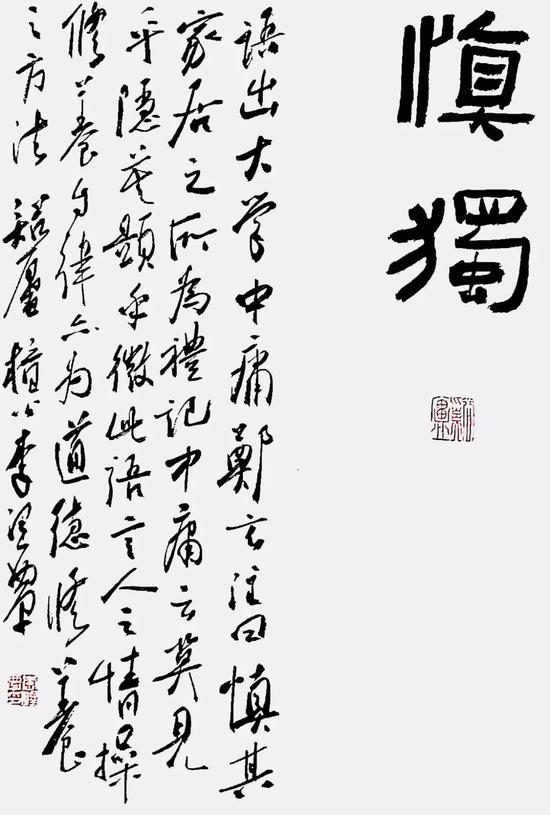 慎獨
語出大学中庸鄭玄注曰慎其
家居之所為禮記中庸云莫見
乎隱莫顯乎微此語言人之情操
修養自律亦为道德修養
之方法 李